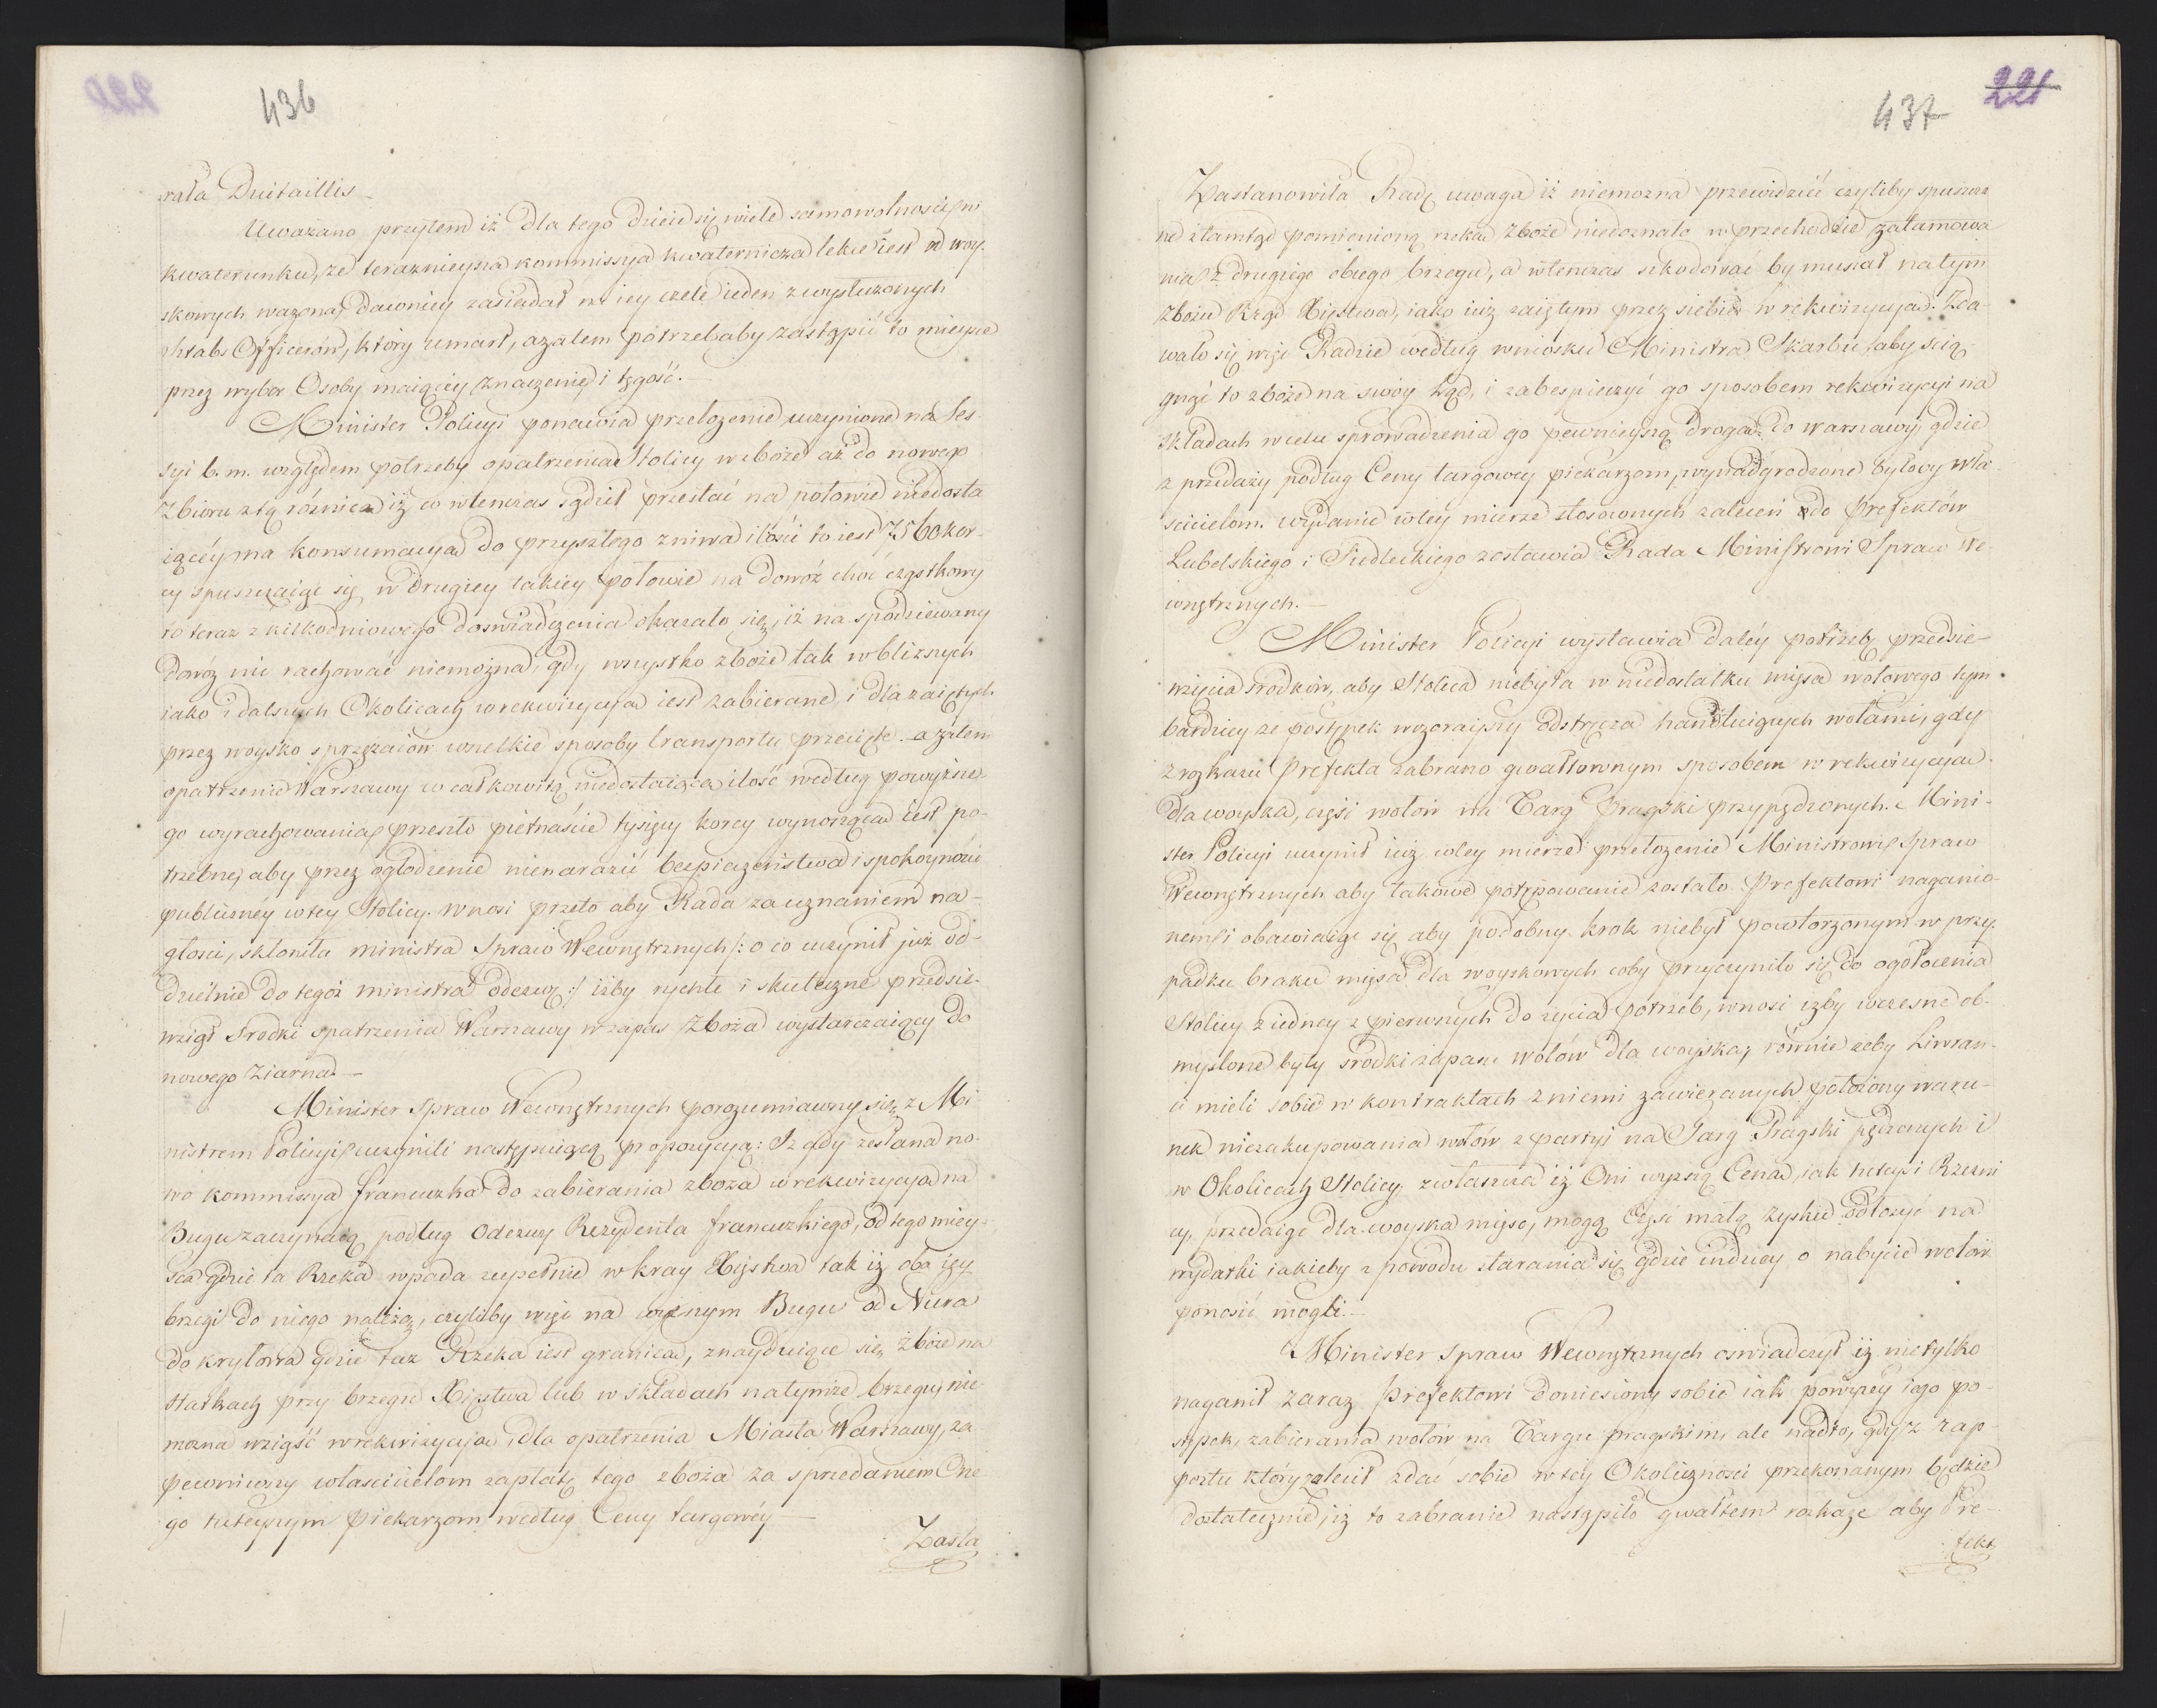 436
rała Dutaillis
Uważano przytem iż dla tego dzieie się wiele samowolności w
kwaterunku, że teraznieysza kommissya kwaternicza lekce iest od woy-
skowych ważona, dawniey zasiadał w iey czele ieden z wysłużonych
sztabs Officerów, który umarł, azatem potrzebaby zastąpić to mieysce
przez wybor Osoby maiącey znaczenie i tęgość.—
Minister Policyi ponawia przełożenie uczynione na Ses-
syi b. m. względem potrzeby opatrzenia Stolicy w zboże aż do nowego
Zbioru z tą różnicą iż co wtenczas sądził przestać na połowie niedosta
iącéy na konsumacyą do przyszłego żniwa ilości to iest 7560 kor-
cy spuszczaiąc się w drugiey takiey połowie na dowóz choć cząstkowy
to teraz z kilkodniowego doswiadczenia okazało się, iż na spodziewany
dowóz nic rachować niemożna, gdy wszystko zboże tak w bliższych
iako i dalszych Okolicach w rekwizycyą iest zabierane i dla zaiętych
przez woysko sprzężaiów wszelkie sposoby transportu przecięte. a zatem
opatrzenie Warszawy w całkowitą niedostaiącą ilość według powyższe-
go wyrachowania przeszło piętnaście tysięcy korcy wynoszącą iest po-
trzebne, aby przez ogłodzenie nienarazić bezpieczeństwa i spokoyności
publicznéy w tey Stolicy. wnosi przeto aby Rada za uznaniem na-
głości, skłoniła ministra Spraw Wewnętrznych /: o co uczynił już od-
dzielnie do tegoż ministra odezwę :/ iżby rychłe i skuteczne przedsie-
wziął srodki opatrzenia Warszawy w zapas Zboża wystarczaiący do
nowego Ziarna.—
Minister Spraw Wewnętrznych porozumiawszy się z Mi-
nistrem Policyi uczynili następuiącą propozycyą: Iż gdy zesłana no-
wo kommissya francuzka do zabierania zboża w rekwizycyą na
Bugu zaczynaią podług odezwy Rezydenta francuzkiego, od tego miey-
sca gdzie ta Rzeka wpada zupełnie w kray Xięstwa tak iż oba iey
brzegi do niego należą, czyliby więc na wyższym Bugu od Nura
do kryłowa gdzie taż Rzeka iest granicą, znayduiące się zboże na
statkach przy brzegu Xięstwa lub w składach na tymże brzegu, nie-
można wziąść w rekwizycyą dla opatrzenia Miasta Warszawy, za-
pewniwszy właścicielom zapłatę tego zboża za sprzedaniem One-
go tuteyszym Piekarzom według Ceny targowéy —
Zasta
437
221
Zastanowiła Radę uwaga iż niemożna przewidzieć czyliby spuszcza
ne ztamtąd pomienioną rzeką Zboże niedoznało w przechodzie zatamowa
nia z drugiego obcego brzegu, a wtenczas szkodować by musiał na tym
Zbożu Rząd Xięstwa, iako iuż zaiętym przez siebie w rekwizycyą. Zda-
wało się więc Radzie według wniosku Ministra Skarbu, aby scią-
gnąć to zboże na swóy ląd, i zabespieczyć go sposobem rekwizycyi na
składach w celu sprowadzenia go pewnieyszą drogą do warszawy, gdzie
z przedaży podług Ceny targowey piekarzom, wynadgrodzone byłoby wła-
scicielom. wydanie w tey mierze stosownych zaleceń do Prefektów
Lubelskiego i Siedleckiego zostawia Rada Ministrowi Spraw We-
wnętrznych.—
Minister Policyi wystawia daléy potrzebę przedsie-
wzięcia srodków, aby Stolica niebyła w niedostatku mięsa wołowego tym
bardziey że postępek wczorayszy odstręcza handluiących wołami, gdy
z rozkazu Prefekta zabrano gwałtownym sposobem w rekwizycyą
dla woyska, część wołów na Targ Pragski przypędzonych. Mini-
ster Policyi uczynił iuż w tey mierze przełożenie Ministrowi Spraw
Wewnętrznych aby takowe postępowanie zostało Prefektowi nagannio-
nem, i obawiaiąc się aby podobny krok niebył powtorzonym w przy-
padku braku mięsa dla woyskowych coby przyczyniło się do ogołocenia
Stolicy z iedney z pierwszych do życia potrzeb, wnosi iżby wczesne ob-
myslone były srodki zapasu wołów dla woyska, równie żeby Liwran-
ci mieli sobie w kontraktach z niemi zawieranych położony waru-
nek niezakupowania wołów z partyi na Targ Pragski pędzonych i
w Okolicach Stolicy, zwłaszcza iż Oni wyższą Ceną, iak tuteysi Rzezni
cy, przedaiąc dla woyska mięso, mogą Część małą zysku odłożyć na
wydatki iakieby z powodu starania się gdzie indziey o nabycie wołów
ponosić mogli.—
Minister Spraw Wewnętrznych oświadczył iż nietylko
naganił zaraz Prefektowi doniesiony sobie iak powyżéy iego po-
stępek, zabierania wołów na Targu pragskim, ale nadto, gdy z rap-
portu który zlecił zdać sobie w tey Okoliczności przekonanym będzie
dostatecznie, iż to zabranie nastąpiło gwałtem rozkaże aby Pre-
fekt